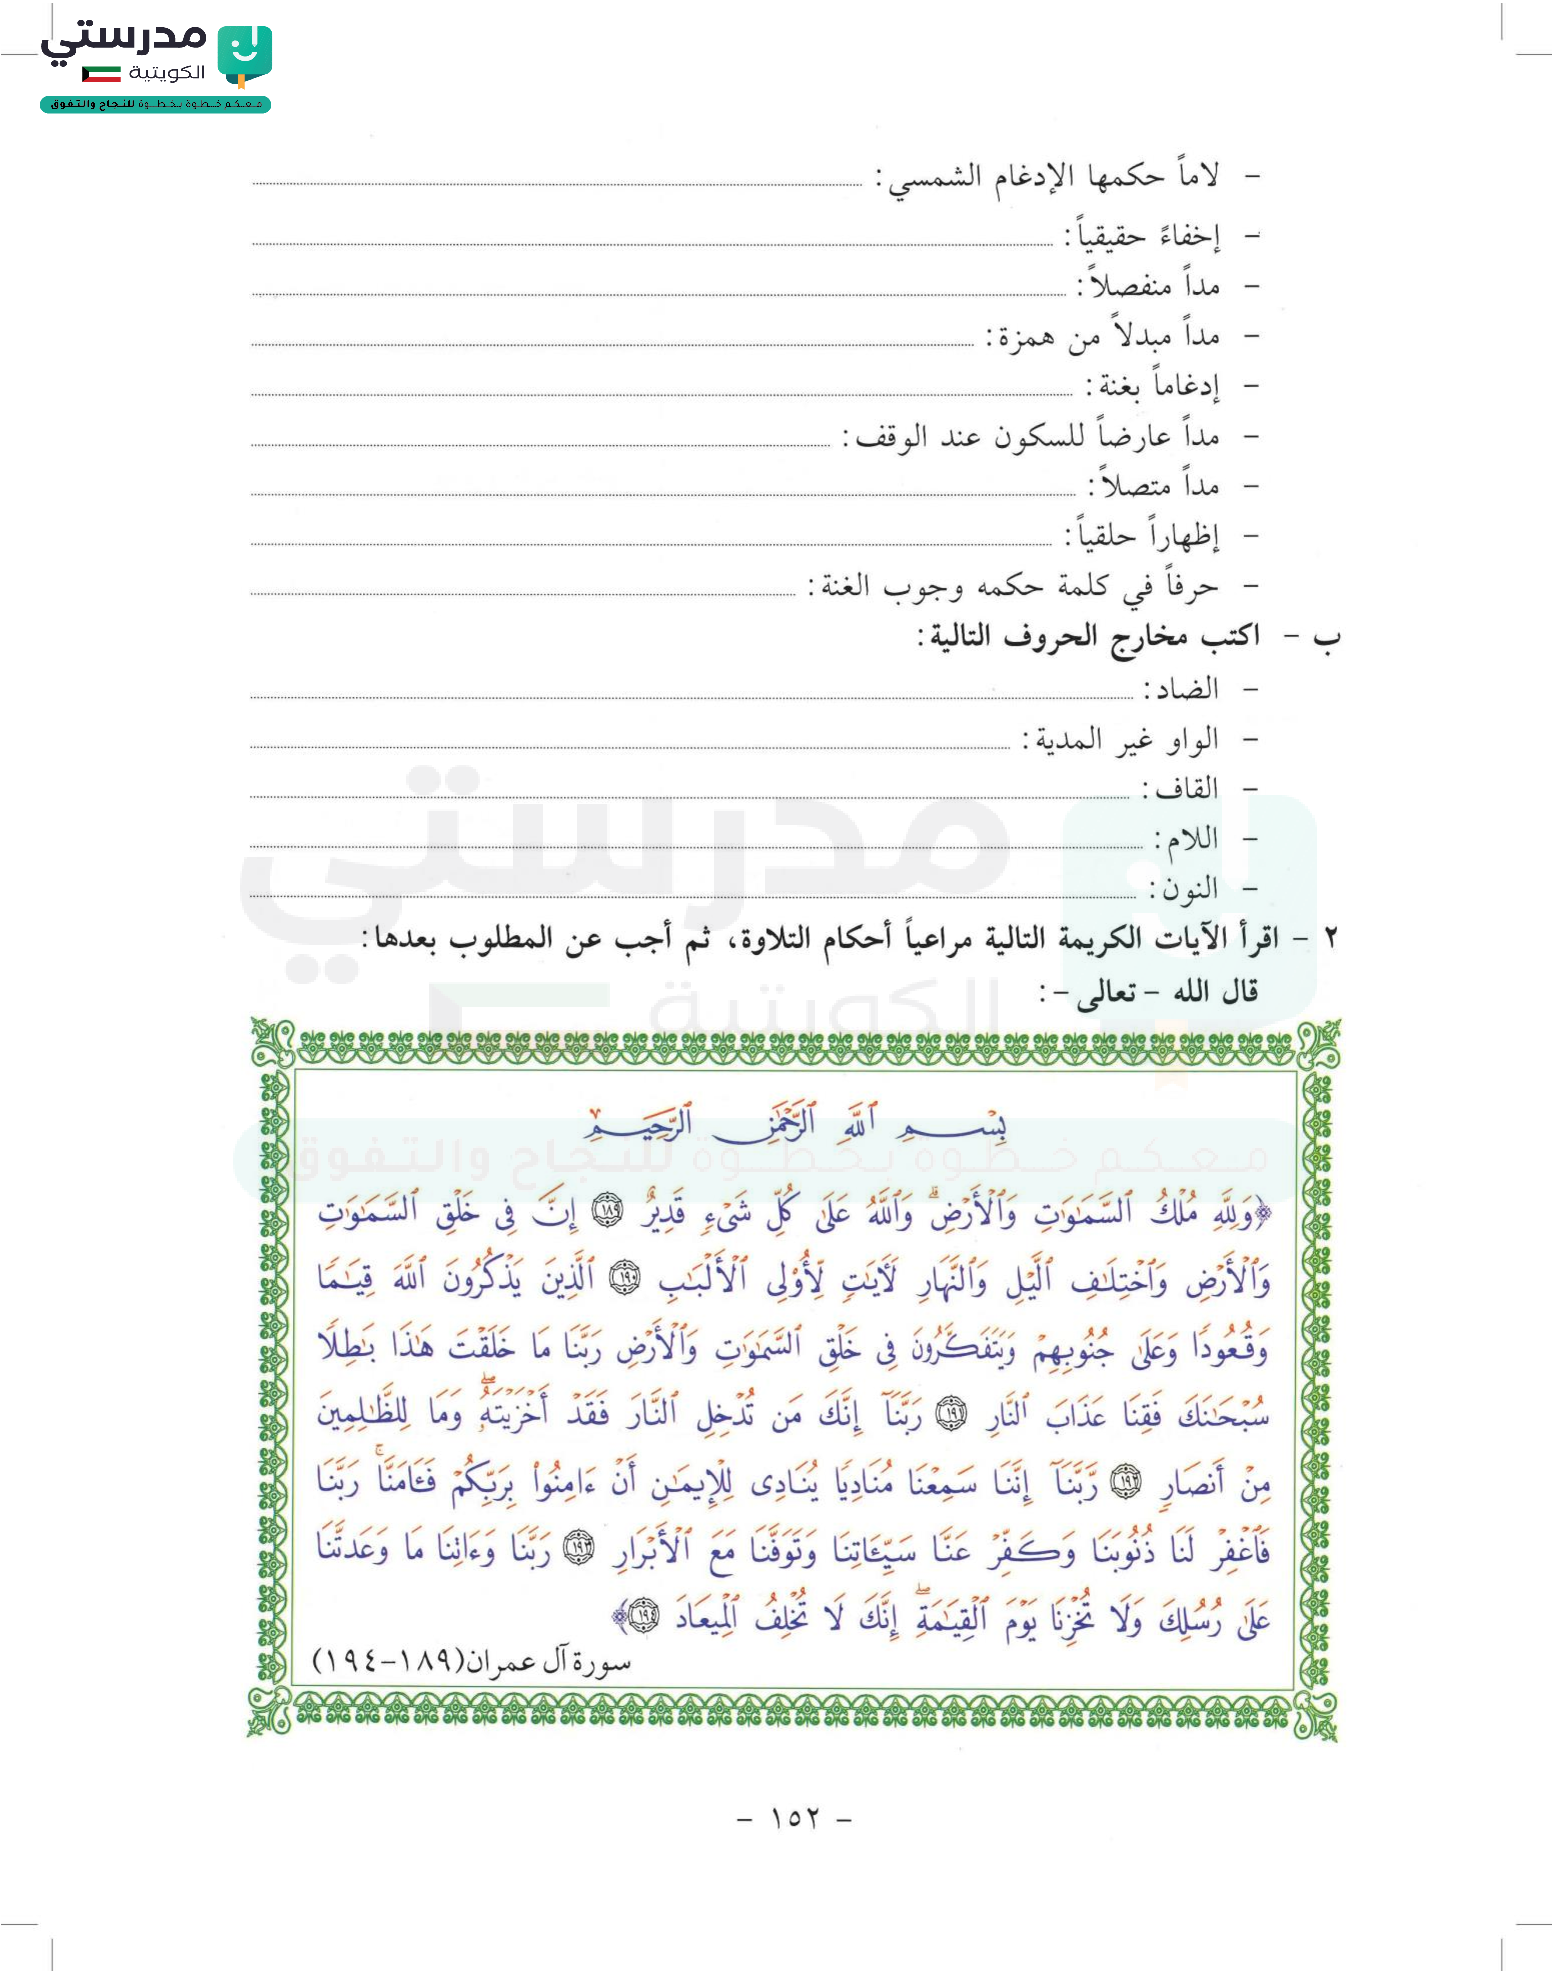 مدرستي
الكويتية
معكم خطوة بخطوة للنجاح والتفوق
- لاماً حكمها الإدغام الشمسي:
- إخفاءً حقيقياً:
- مداً منفصلاً:
- مداً مبدلاً من همزة:
- إدغاماً بغنة:
- مداً عارضاً للسكون عند الوقف:
- مداً متصلاً:
- إظهاراً حلقياً:
- حرفاً في كلمة حكمه وجوب الغنة:
ب - اكتب مخارج الحروف التالية:
- الضاد:
- الواو غير المدية:
- القاف:
- اللام:
- النون:
٢ - اقرأ الآيات الكريمة التالية مراعياً أحكام التلاوة، ثم أجب عن المطلوب بعدها:
قال الله -تعالى-:
بِسْمِ ٱللَّهِ ٱلرَّحْمَٰنِ ٱلرَّحِيمِ
﴿وَلِلَّهِ مُلْكُ ٱلسَّمَٰوَٰتِ وَٱلْأَرْضِ ۗ وَٱللَّهُ عَلَىٰ كُلِّ شَىْءٍ قَدِيرٌ ١٨٩ إِنَّ فِى خَلْقِ ٱلسَّمَٰوَٰتِ
وَٱلْأَرْضِ وَٱخْتِلَٰفِ ٱلَّيْلِ وَٱلنَّهَارِ لَءَايَٰتٍ لِّأُو۟لِى ٱلْأَلْبَٰبِ ١٩٠ ٱلَّذِينَ يَذْكُرُونَ ٱللَّهَ قِيَٰمًا
وَقُعُودًا وَعَلَىٰ جُنُوبِهِمْ وَيَتَفَكَّرُونَ فِى خَلْقِ ٱلسَّمَٰوَٰتِ وَٱلْأَرْضِ رَبَّنَا مَا خَلَقْتَ هَٰذَا بَٰطِلًا
سُبْحَٰنَكَ فَقِنَا عَذَابَ ٱلنَّارِ ١٩١ رَبَّنَآ إِنَّكَ مَن تُدْخِلِ ٱلنَّارَ فَقَدْ أَخْزَيْتَهُۥ ۖ وَمَا لِلظَّٰلِمِينَ
مِنْ أَنصَارٍ ١٩٢ رَّبَّنَآ إِنَّنَا سَمِعْنَا مُنَادِيًا يُنَادِى لِلْإِيمَٰنِ أَنْ ءَامِنُوا۟ بِرَبِّكُمْ فَـَٔامَنَّا ۚ رَبَّنَا
فَٱغْفِرْ لَنَا ذُنُوبَنَا وَكَفِّرْ عَنَّا سَيِّـَٔاتِنَا وَتَوَفَّنَا مَعَ ٱلْأَبْرَارِ ١٩٣ رَبَّنَا وَءَاتِنَا مَا وَعَدتَّنَا
عَلَىٰ رُسُلِكَ وَلَا تُخْزِنَا يَوْمَ ٱلْقِيَٰمَةِ ۖ إِنَّكَ لَا تُخْلِفُ ٱلْمِيعَادَ ١٩٤﴾
سورة آل عمران(١٨٩-١٩٤)
- ١٥٢ -